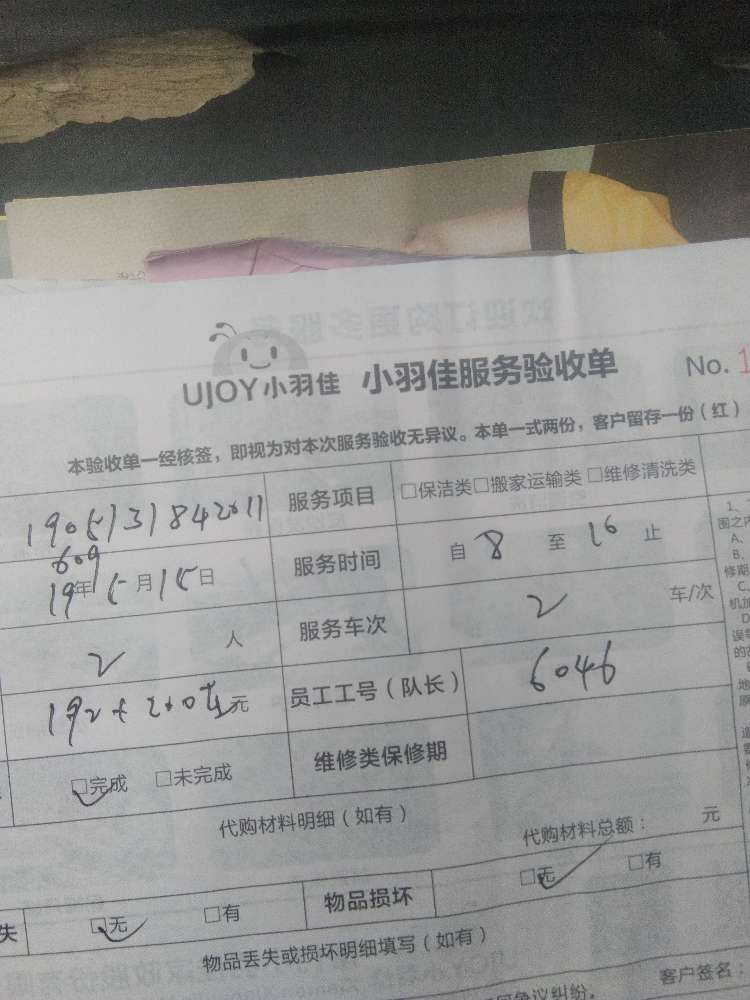 UJOY小羽佳 小羽佳服务验收单 No. 1
本验收单一经核签，即视为对本次服务验收无异议。本单一式两份，客户留存一份（红）
服务项目 □保洁类□搬家运输类 □维修清洗类
609
19年5月15日 服务时间 自 8 至 16 止
2 人 服务车次 2 车/次
元 员工工号（队长） 6046
□完成 □未完成 维修类保修期
代购材料明细（如有）
代购材料总额： 元
失 □无 □有 物品损坏 □无 □有
物品丢失或损坏明细填写（如有）
争议纠纷。
客户签名：
1、
围之内
A、
B、
修期
C、
机加
D
误零
的
地
原